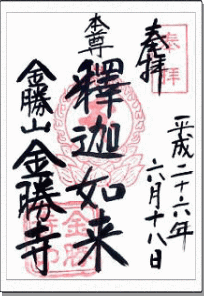 奉拝
奉拝
平成二十六年
六月十八日
本尊
釋迦如来
金勝山 金勝寺